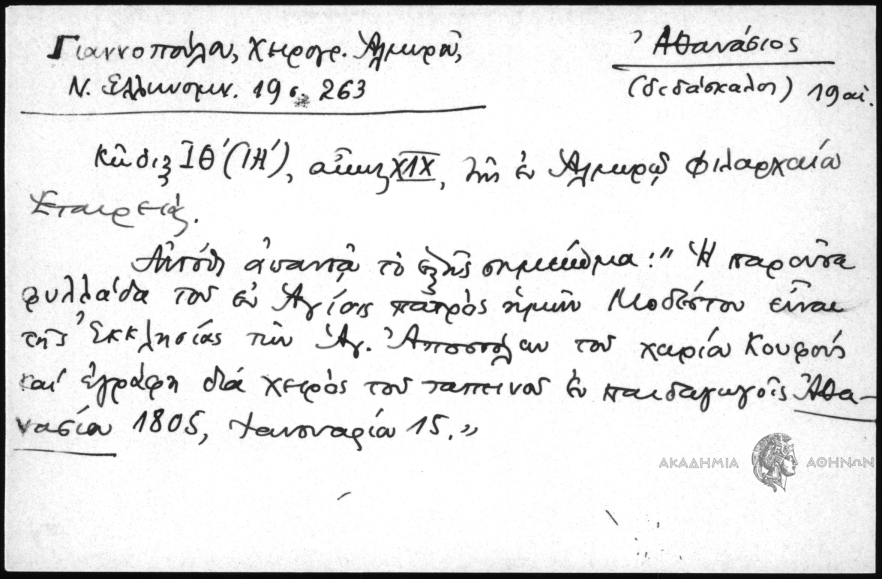 Γιαννοπούλου, Χειρογρ. Αλμυρού,
Ν. Ελληνομν. 19 σ. 263
Ἀθανάσιος
(διδάσκαλος) 19 αἰ.
Κῶδιξ ΙΘ΄ (ΙΗ΄), αἰῶνος XIX, τῆς ἐν Ἁλμυρῷ Φιλαρχαίου
Ἑταιρείας.
Αὐτόθι ἀπαντᾷ τὸ ἑξῆς σημείωμα: "Ἡ παροῦσα
φυλλάδα τοῦ ἐν Ἁγίοις πατρὸς ἡμῶν Μοδέστου εἶναι
τῆς Ἐκκλησίας τῶν Ἁγ. Ἀποστόλων τοῦ χωρίου Κουφοῦς
καὶ ἐγράφη διὰ χειρὸς τοῦ ταπεινοῦ ἐν παιδαγωγοῖς Ἀθα-
νασίου 1805, Ἰαννουαρίου 15."
ΑΚΑΔΗΜΙΑ ΑΘΗΝΩΝ